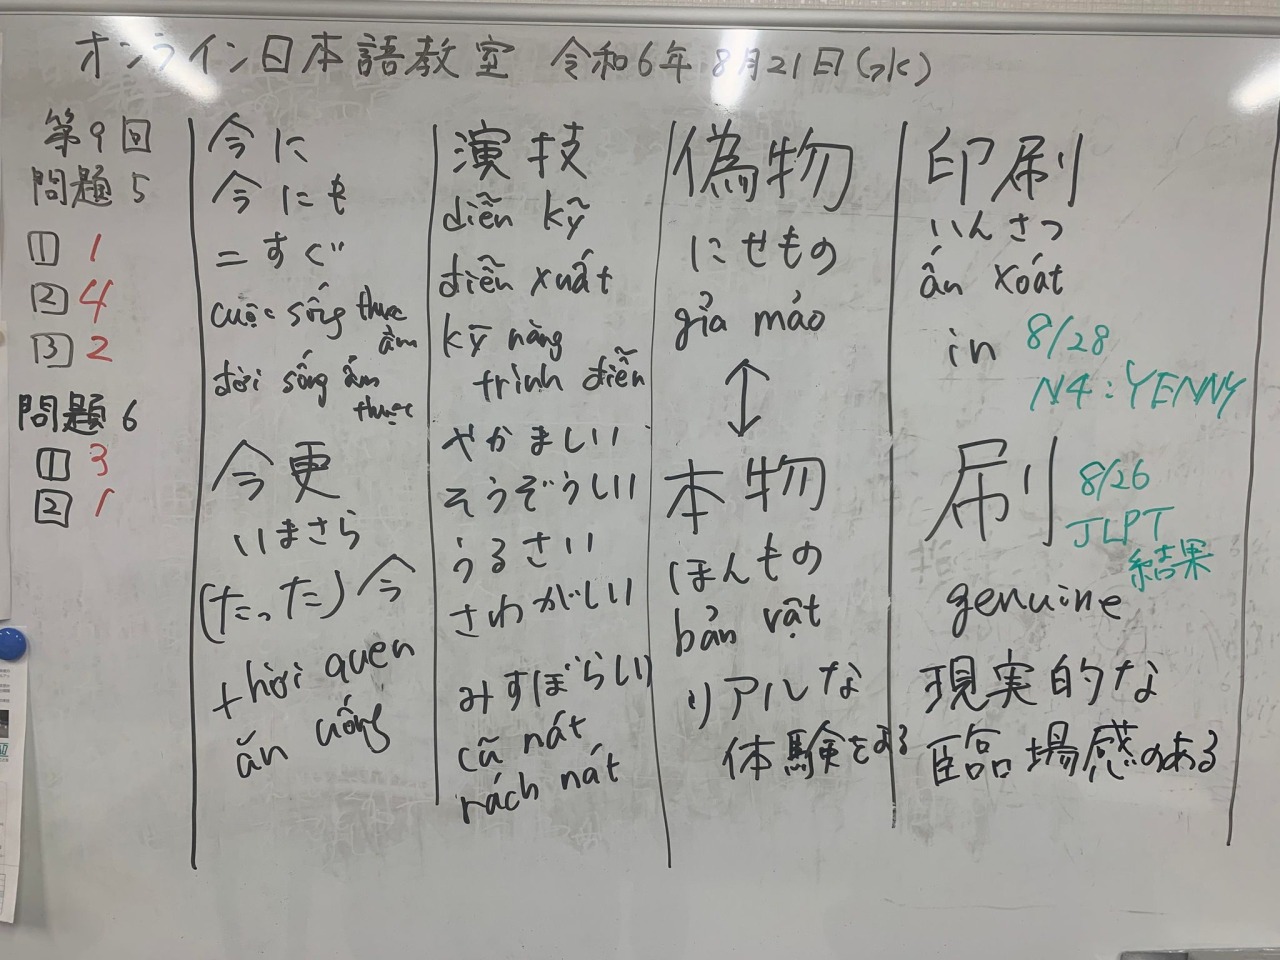 オンライン日本語教室 令和6年8月21日(水)
第9回
問題5
1 1
2 4
3 2
問題6
1 3
2 1
今に
今にも
=すぐ
cuộc sống thực
ẩm
đời sống ẩm
thực
今更
いまさら
(たった)今
thời quen
ăn uống
演技
diễn kỹ
diễn xuất
kỹ năng
trình diễn
やかましい
そうぞうしい
うるさい
さわがしい
みすぼらしい
cũ nát
rách nát
偽物
にせもの
giả mảo
↕
本物
ほんもの
bản vật
リアルな
体験をする
印刷
いんさつ
ấn xoát
in
8/28
N4:YENNY
刷
8/26
JLPT
結果
genuine
現実的な
臨場感のある